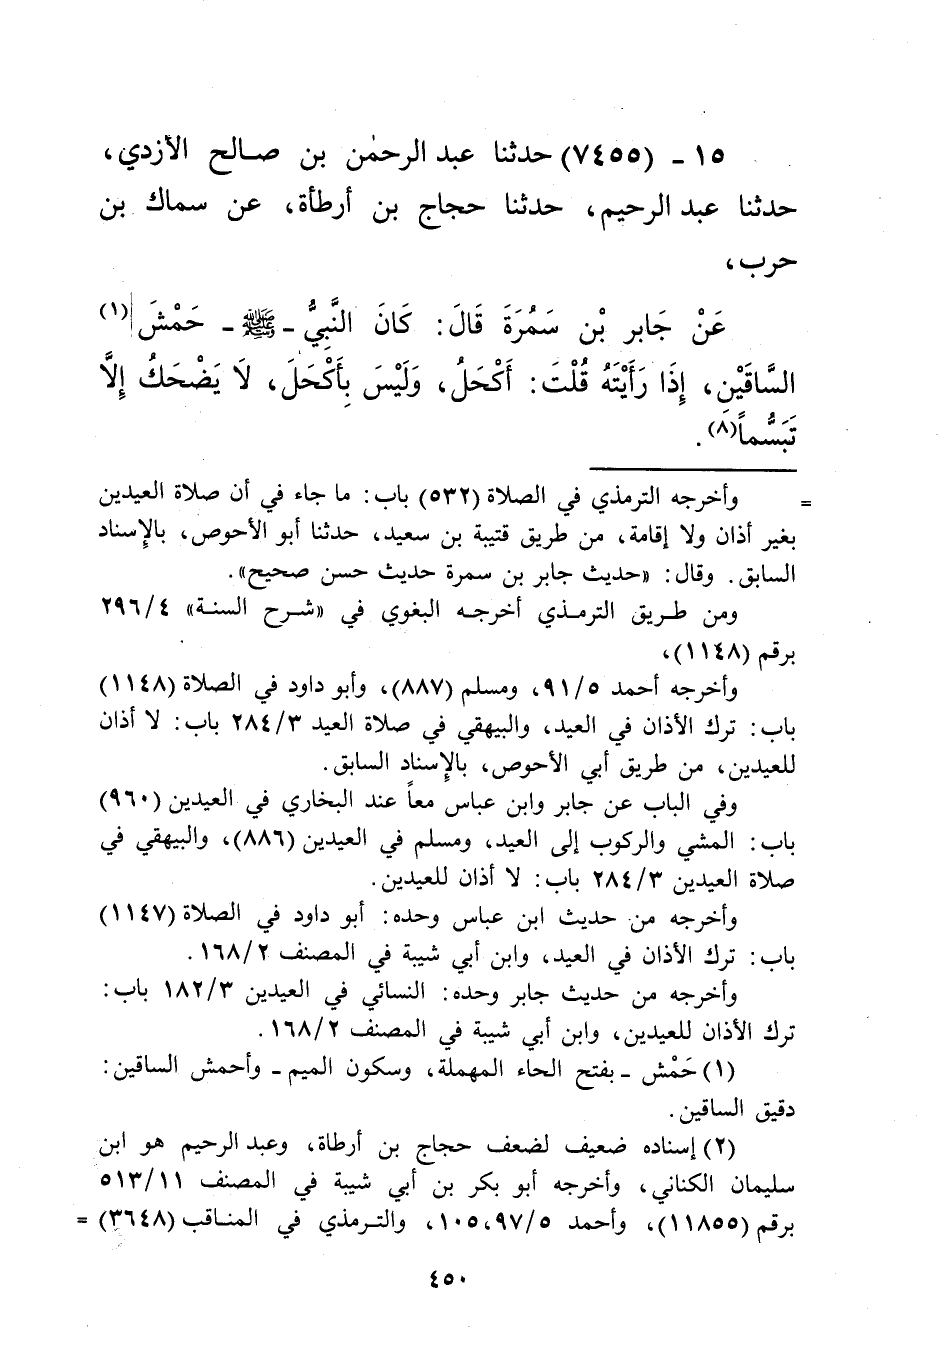 ١٥ ـ (٧٤٥٥) حدثنا عبد الرحمٰن بن صالح الأزدي،
حدثنا عبد الرحيم، حدثنا حجاج بن أرطأة، عن سماك بن
حرب،
عَنْ جَابر بْنِ سَمُرَةَ قَالَ: كَانَ النَّبِيُّ ـ ﷺ ـ حَمْشَ(١)
السَّاقَيْنِ، إِذَا رَأَيْتَهُ قُلْتَ: أَكْحَلُ، وَلَيْسَ بِأَكْحَلَ، لَا يَضْحَكُ إِلَّا
تَبَسُّماً(٨).
= وأخرجه الترمذي في الصلاة (٥٣٢) باب: ما جاء في أن صلاة العيدين
بغير أذان ولا إقامة، من طريق قتيبة بن سعيد، حدثنا أبو الأحوص، بالإسناد
السابق. وقال: «حديث جابر بن سمرة حديث حسن صحيح».
ومن طريق الترمذي أخرجه البغوي في «شرح السنة» ٢٩٦/٤
برقم (١١٤٨)،
وأخرجه أحمد ٩١/٥، ومسلم (٨٨٧)، وأبو داود في الصلاة (١١٤٨)
باب: ترك الأذان في العيد، والبيهقي في صلاة العيد ٢٨٤/٣ باب: لا أذان
للعيدين، من طريق أبي الأحوص، بالإسناد السابق.
وفي الباب عن جابر وابن عباس معاً عند البخاري في العيدين (٩٦٠)
باب: المشي والركوب إلى العيد، ومسلم في العيدين (٨٨٦)، والبيهقي في
صلاة العيدين ٢٨٤/٣ باب: لا أذان للعيدين.
وأخرجه من حديث ابن عباس وحده: أبو داود في الصلاة (١١٤٧)
باب: ترك الأذان في العيد، وابن أبي شيبة في المصنف ١٦٨/٢.
وأخرجه من حديث جابر وحده: النسائي في العيدين ١٨٢/٣ باب:
ترك الأذان للعيدين، وابن أبي شيبة في المصنف ١٦٨/٢.
(١) حَمْش ـ بفتح الحاء المهملة، وسكون الميم ـ وأحمش الساقين:
دقيق الساقين.
(٢) إسناده ضعيف لضعف حجاج بن أرطاة، وعبد الرحيم هو ابن
سليمان الكناني، وأخرجه أبو بكر بن أبي شيبة في المصنف ٥١٣/١١
برقم (١١٨٥٥)، وأحمد ٩٧/٥، ١٠٥، والترمذي في المناقب (٣٦٤٨) =
٤٥٠